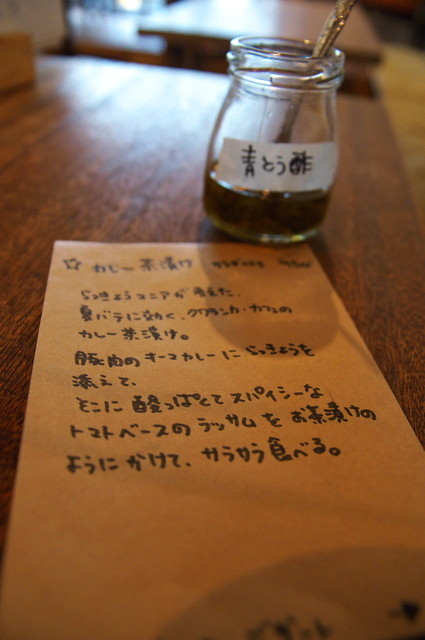 青とう酢
☆ カレー茶漬け
らっきょうマニアが考えた、
夏バテに効く、クワランカ・カフェの
カレー茶漬け。
豚肉のキーマカレーにらっきょうを
添えて、
そこに酸っぱくてスパイシーな
トマトベースのラッサムをお茶漬けの
ようにかけて、サラサラ食べる。